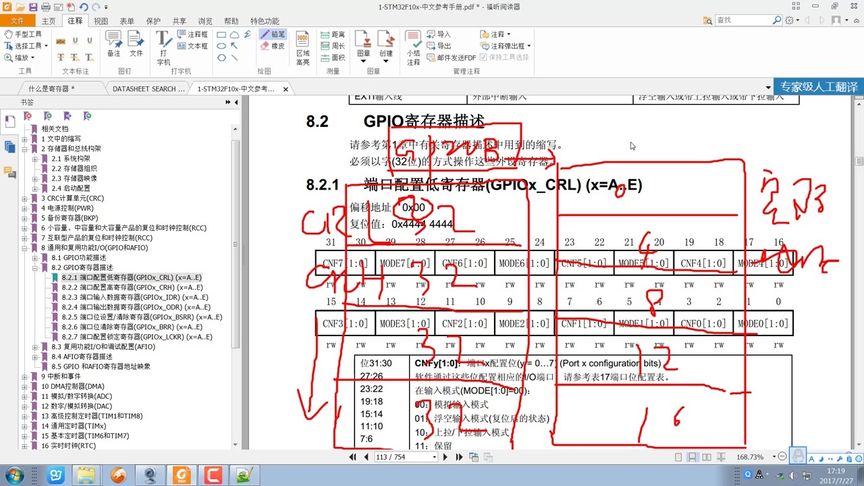 1-STM32F10x-中文参考手册.pdf * - 福昕阅读器
文件 主页 注释 视图 表单 保护 共享 浏览 帮助 特色功能
手型工具
选择工具
缩放
工具
文本标注
备注
文件
打字机
注释框
文本框
打字机
铅笔
橡皮
绘图
区域高亮
距离
周长
面积
测量
图章
创建
图章
小结注释
导入
导出
邮件发送FDF
注释
注释弹出框
保持工具选择
管理注释
查找
什么是寄存器 * DATASHEET SEARCH ... 1-STM32F10x-中文参考...
专家级人工翻译
书签
相关文档
1 文中的缩写
2 存储器和总线构架
2.1 系统构架
2.2 存储器组织
2.3 存储器映像
2.4 启动配置
3 CRC计算单元(CRC)
4 电源控制(PWR)
5 备份寄存器(BKP)
6 小容量、中容量和大容量产品的复位和时钟控制(RCC)
7 互联型产品的复位和时钟控制(RCC)
8 通用和复用功能I/O(GPIO和AFIO)
8.1 GPIO功能描述
8.2 GPIO寄存器描述
8.2.1 端口配置低寄存器(GPIOx_CRL) (x=A..E)
8.2.2 端口配置高寄存器(GPIOx_CRH) (x=A..E)
8.2.3 端口输入数据寄存器(GPIOx_IDR) (x=A..E)
8.2.4 端口输出数据寄存器(GPIOx_ODR) (x=A..E)
8.2.5 端口位设置/清除寄存器(GPIOx_BSRR) (x=A..E)
8.2.6 端口位清除寄存器(GPIOx_BRR) (x=A..E)
8.2.7 端口配置锁定寄存器(GPIOx_LCKR) (x=A..E)
8.3 复用功能I/O和调试配置(AFIO)
8.4 AFIO寄存器描述
8.5 GPIO 和AFIO寄存器地址映象
9 中断和事件
10 DMA控制器(DMA)
11 模拟/数字转换(ADC)
12 数字/模拟转换(DAC)
13 高级控制定时器(TIM1和TIM8)
14 通用定时器(TIMx)
15 基本定时器(TIM6和TIM7)
16 实时时钟(RTC)
EXTI输入线 外部中断输入 浮空输入或带上拉输入或带下拉输入
8.2 GPIO寄存器描述
请参考第1章中有关寄存器描述中用到的缩写。
必须以字(32位)的方式操作这些外设寄存器。
GPIOB
8.2.1 端口配置低寄存器(GPIOx_CRL) (x=A..E)
偏移地址: 0x00
复位值: 0x4444 4444
CRL 32
0
31 30 29 28 27 26 25 24 23 22 21 20 19 18 17 16
CNF7[1:0] MODE7[1:0] CNF6[1:0] MODE6[1:0] CNF5[1:0] MODE5[1:0] CNF4[1:0] MODE4[1:0]
rw rw rw rw rw rw rw rw rw rw rw rw rw rw rw rw
CRH 32
4
15 14 13 12 11 10 9 8 7 6 5 4 3 2 1 0
CNF3[1:0] MODE3[1:0] CNF2[1:0] MODE2[1:0] CNF1[1:0] MODE1[1:0] CNF0[1:0] MODE0[1:0]
rw rw rw rw rw rw rw rw rw rw rw rw rw rw rw rw
8
32
12
位31:30
27:26
23:22
19:18
15:14
11:10
7:6
CNFy[1:0]: 端口x配置位(y = 0…7) (Port x configuration bits)
软件通过这些位配置相应的I/O端口, 请参考表17端口位配置表。
在输入模式(MODE[1:0]=00):
00: 模拟输入模式
01: 浮空输入模式(复位后的状态)
10: 上拉/下拉输入模式
11: 保留
32
16
113 / 754
168.73%
17:19
2017/7/27